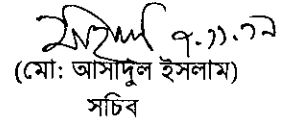 ৭.১১.১৯
(মো: আসাদুল ইসলাম)
সচিব